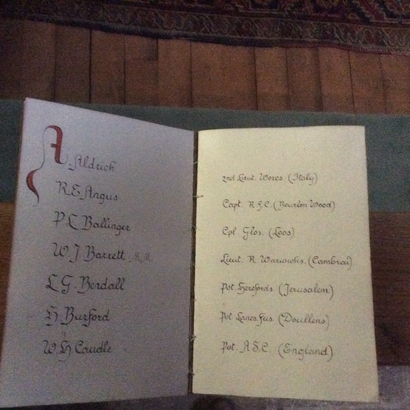 A. Aldrich
R.E. Angus
P.C. Ballinger
W.J. Barrett M.M.
L.G. Berdall
H. Burford
W.H. Caudle
2nd Lieut. Worcs. (Italy)
Capt. R.G.C. (Bourlon Wood)
Cpl. Glos. (Loos)
Lieut. R. Warwicks. (Cambrai)
Pvt. Herefords. (Jerusalem)
Pvt. Lancs Fus. (Doullens)
Pvt. A.S.C. (England)